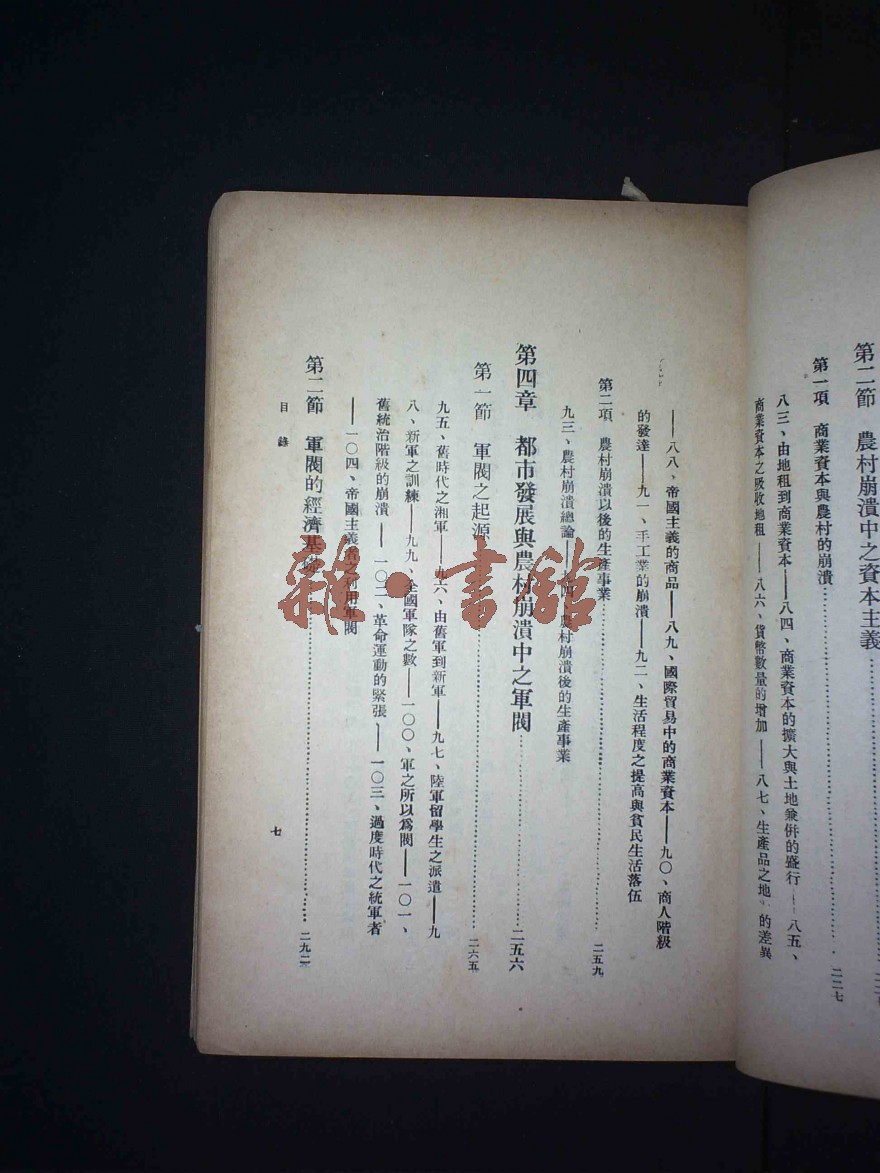 第二節 農村崩潰中之資本主義
第一項 商業資本與農村的崩潰……二二七
八三、由地租到商業資本——八四、商業資本的擴大與土地兼併的盛行——八五、
商業資本之吸收地租——八六、貨幣數量的增加——八七、生產品之地 的差異
——八八、帝國主義的商品——八九、國際貿易中的商業資本——九〇、商人階級
的發達——九一、手工業的崩潰——九二、生活程度之提高與貧民生活落伍
第二項 農村崩潰以後的生產事業……二五九
九三、農村崩潰總論——九四、農村崩潰後的生產事業
第四章 都市發展與農村崩潰中之軍閥……二五六
第一節 軍閥之起源……二六五
九五、舊時代之湘軍——九六、由舊軍到新軍——九七、陸軍留學生之派遣——九
八、新軍之訓練——九九、全國軍隊之數——一〇〇、軍之所以為閥——一〇一、
舊統治階級的崩潰——一〇二、革命運動的緊張——一〇三、過度時代之統軍者
——一〇四、帝國主義者之利用軍閥
第二節 軍閥的經濟基礎……二九二
目錄
七
雜·書館